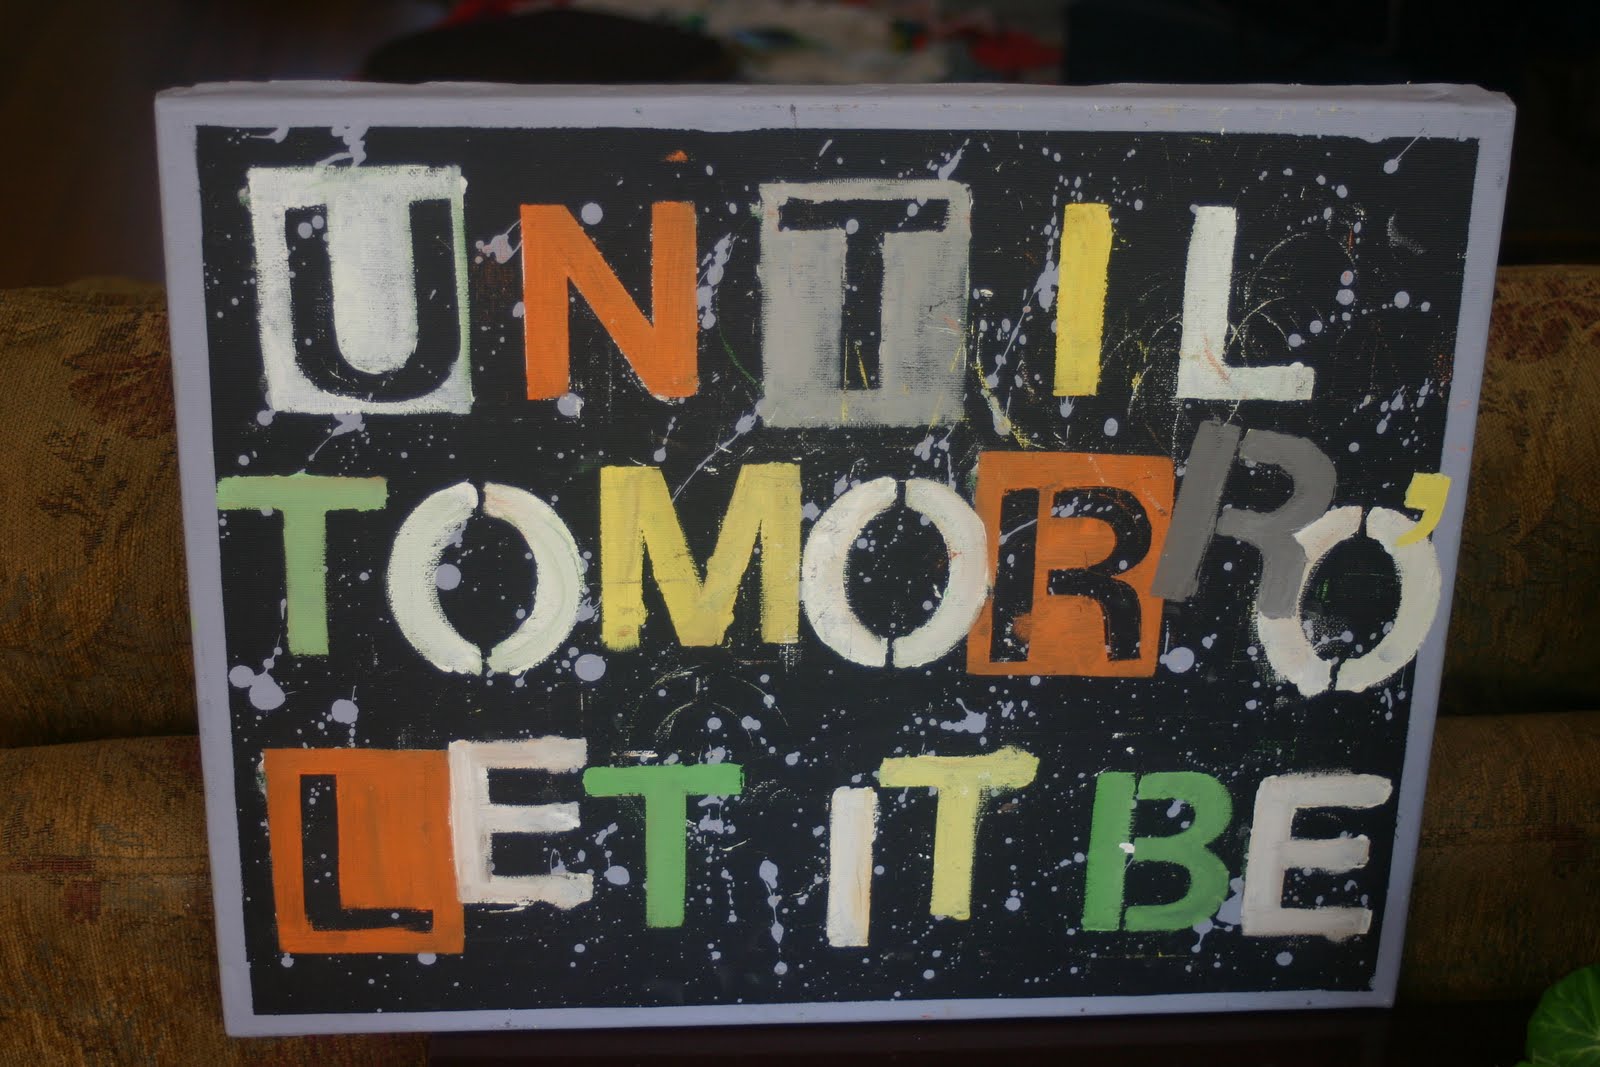 UNTIL
TOMORRO'
LET IT BE